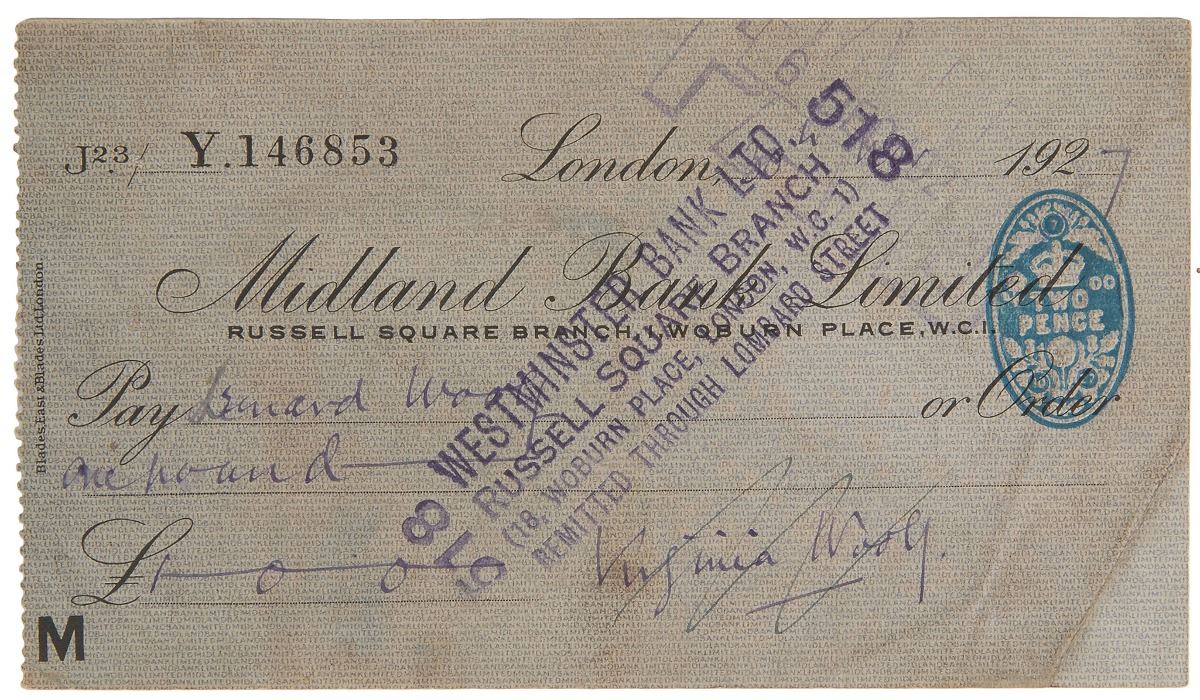 J23/ Y.146853
London, 1927
Midland Bank Limited
RUSSELL SQUARE BRANCH, 1, WOBURN PLACE, W.C.1.
TWO
PENCE
Pay Leonard Woolf or Order
One pound
£1 0 0
Virginia Woolf.
M
Blades, East & Blades, Ltd London
518 WESTMINSTER BANK LTD. 518
RUSSELL SQUARE BRANCH
(18, WOBURN PLACE, LONDON, W.C. 1)
REMITTED THROUGH LOMBARD STREET